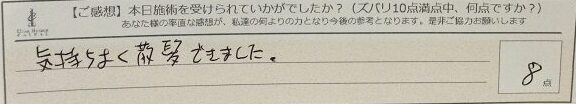 【ご感想】本日施術を受けられていかがでしたか？（ズバリ10点満点中、何点ですか？）
あなた様の率直な感想が、私達の何よりの力となり今後の参考となります。是非ご協力お願いします
気持ちよく散髪できました。
8点